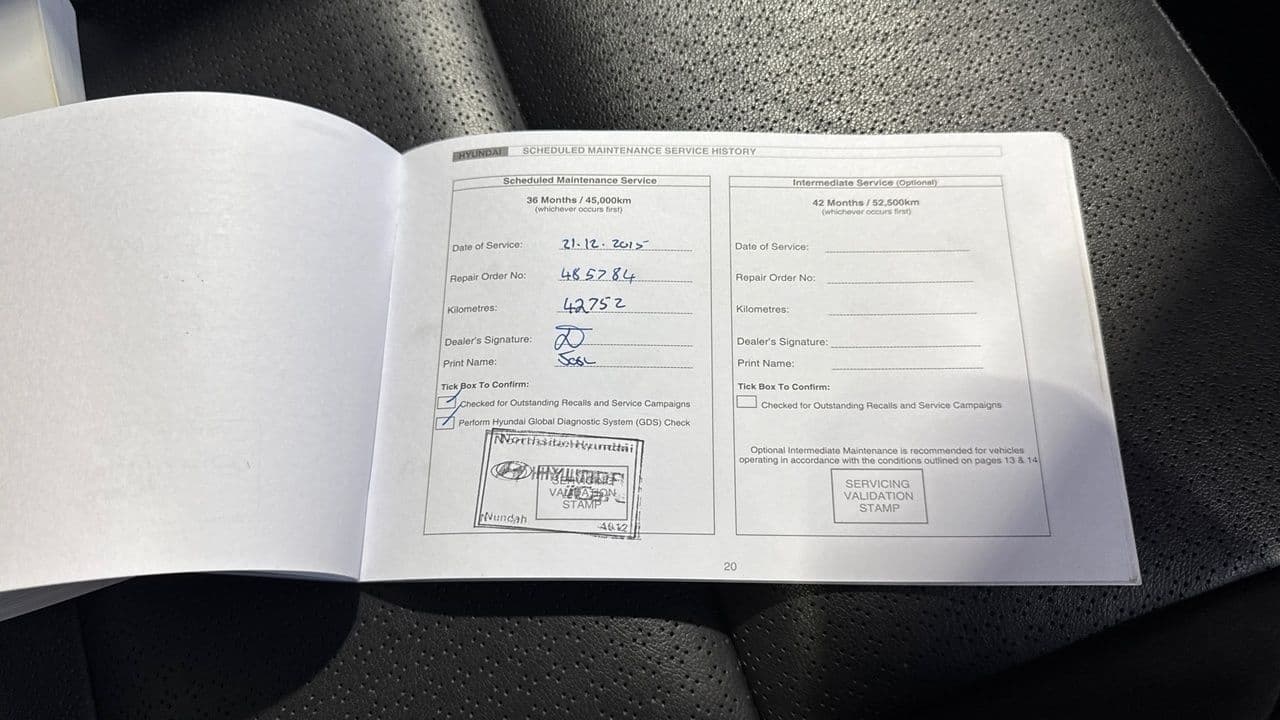 HYUNDAI SCHEDULED MAINTENANCE SERVICE HISTORY
Scheduled Maintenance Service
36 Months / 45,000km
(whichever occurs first)
Date of Service: 21.12.2015
Repair Order No: 485784
Kilometres: 42752
Dealer's Signature:
Print Name:
Tick Box To Confirm:
Checked for Outstanding Recalls and Service Campaigns
Perform Hyundai Global Diagnostic System (GDS) Check
Northside Hyundai
HYUNDAI
SERVICING
VALIDATION
STAMP
Nundah
Intermediate Service (Optional)
42 Months / 52,500km
(whichever occurs first)
Date of Service:
Repair Order No:
Kilometres:
Dealer's Signature:
Print Name:
Tick Box To Confirm:
Checked for Outstanding Recalls and Service Campaigns
Optional Intermediate Maintenance is recommended for vehicles
operating in accordance with the conditions outlined on pages 13 & 14
SERVICING
VALIDATION
STAMP
20